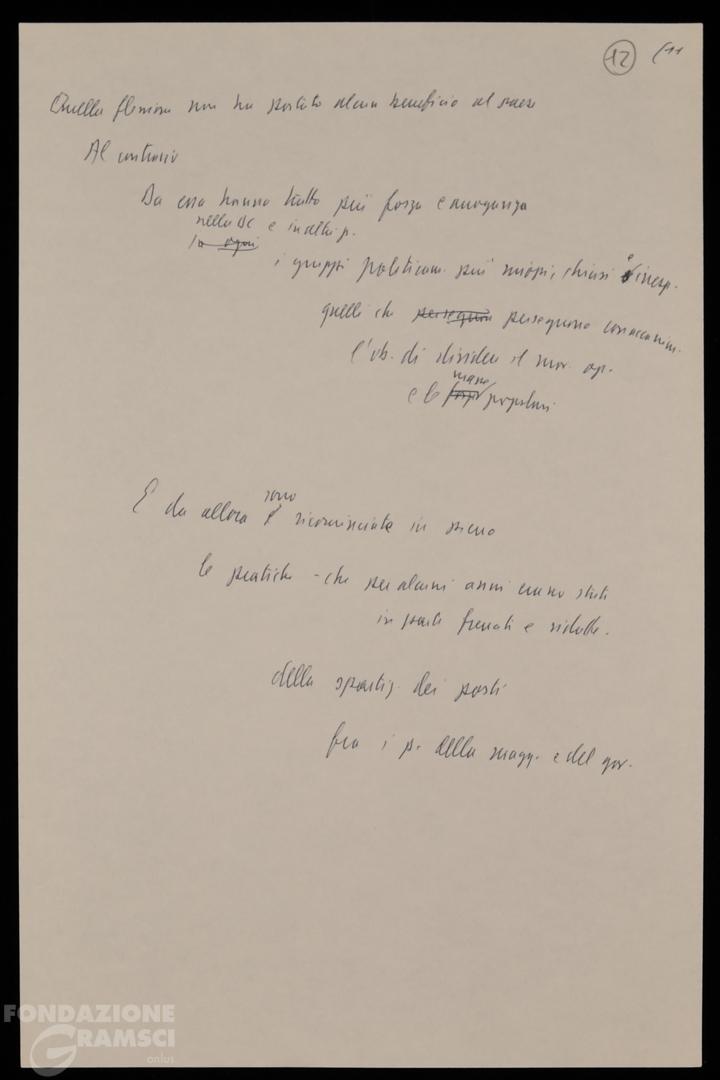 12 (11
Quella flessione non ha portato alcun beneficio al paese
Al contrario
Da essa hanno tratto più forza e arroganza
nella DC e in altri p.
in ogni
i gruppi politicam. più miopi, chiusi e
quelli che perseguono perseguono con accanim.
l'ob. di dividere il mov. op.
masse
e le forze popolari
sono
E da allora è ricominciate in pieno
le pratiche - che per alcuni anni erano state
in parte frenate e ridotte.
della spartiz. dei posti
fra i p. della magg. e del gov.
FONDAZIONE
GRAMSCI
onlus